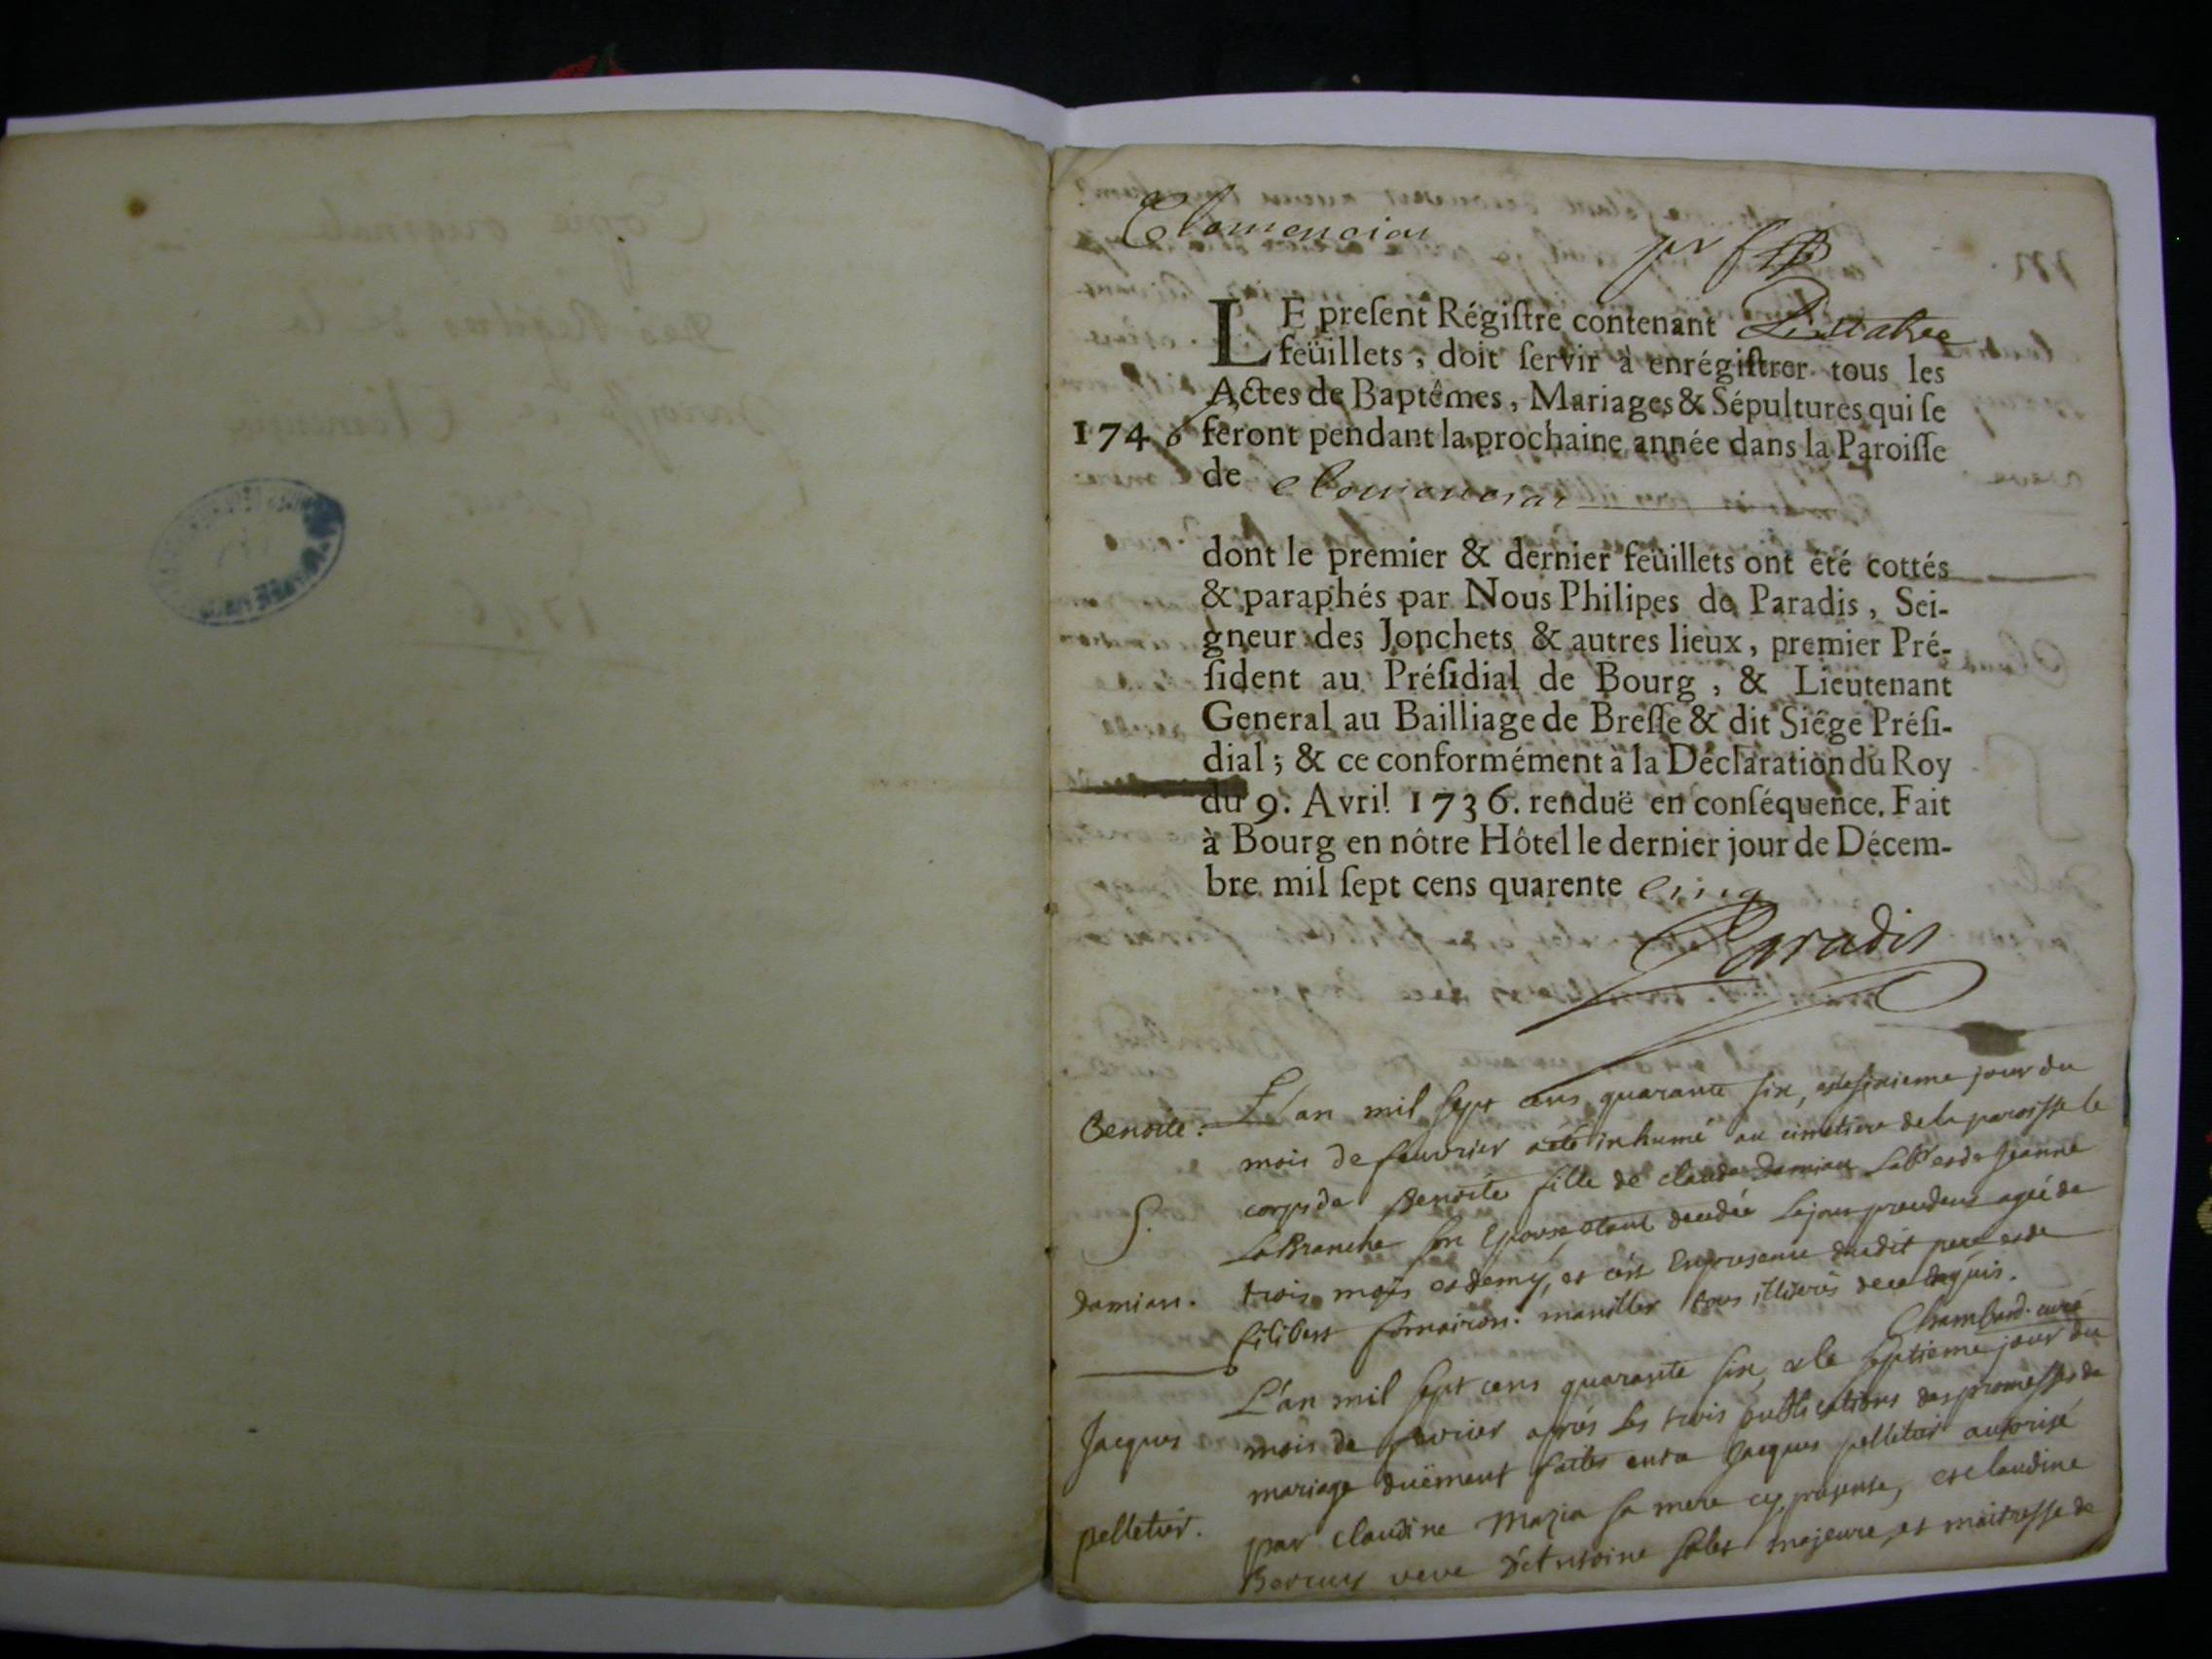 Clemencia
LE preſent Régiſtre contenant
feüillets, doit ſervir à enrégiſtrer tous les
Actes de Baptêmes, Mariages & Sépultures qui ſe
1746 feront pendant la prochaine année dans la Paroiſſe
de Clemencia
dont le premier & dernier feüillets ont été cottés
& paraphés par Nous Philipes de Paradis, Sei-
gneur des Jonchets & autres lieux, premier Pré-
ſident au Préſidial de Bourg, & Lieutenant
General au Bailliage de Breſſe & dit Siége Préſi-
dial; & ce conformément à la Déclaration du Roy
du 9. Avril 1736. renduë en conſéquence. Fait
à Bourg en nôtre Hôtel le dernier jour de Décem-
bre mil ſept cens quarente cinq
Paradis
Benoite: L'an mil sept cens quarante six, et le sixieme jour du
mois de feuvrier a eté inhumé au cimetiere de la paroisse le
corps de Benoite fille de claude Damian Labr et de Jeanne
S. LaBranche son Epouse, etant decedée le jour precedent agée de
trois mois et demy, et c'est En presence dudit pere et de
damian. filibert manillier tous illiterés de ce Enquis.
Chambard. curé
L'an mil sept cens quarante six, et le septieme jour du
Jacques mois de fevrier aprés les trois publications des promesses de
mariage duëment faites entre Jacques pelletier autorisé
pelletier. par claudine Mazia sa mere cy presente, et claudine
Bereuy veve D'Antoine majeure, et maitresse de